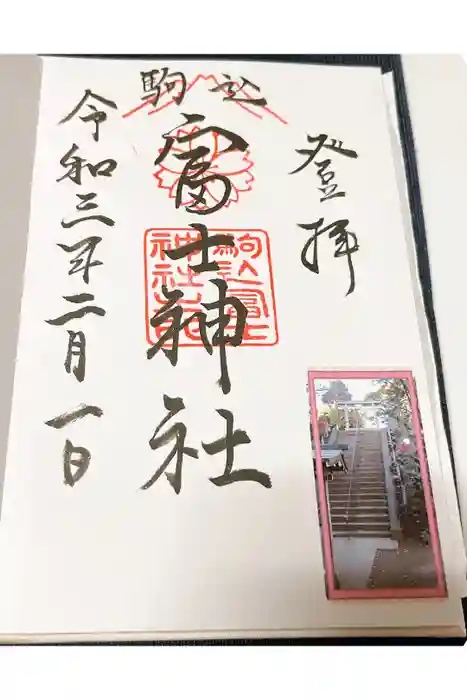 登拝
駒込
富士神社
令和三年二月一日
駒込富士
神社